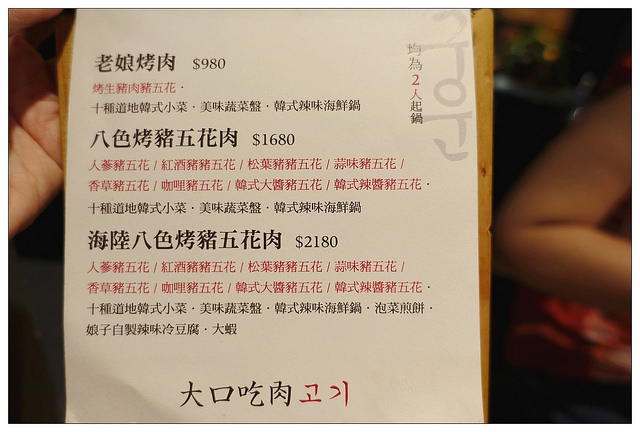 老娘烤肉 $980
烤生豬肉豬五花・
十種道地韓式小菜・美味蔬菜盤・韓式辣味海鮮鍋
八色烤豬五花肉 $1680
人蔘豬五花 / 紅酒豬豬五花 / 松葉豬豬五花 / 蒜味豬五花 /
香草豬五花 / 咖哩豬五花 / 韓式大醬豬五花 / 韓式辣醬豬五花・
十種道地韓式小菜・美味蔬菜盤・韓式辣味海鮮鍋
海陸八色烤豬五花肉 $2180
人蔘豬五花 / 紅酒豬豬五花 / 松葉豬豬五花 / 蒜味豬五花 /
香草豬五花 / 咖哩豬五花 / 韓式大醬豬五花 / 韓式辣醬豬五花・
十種道地韓式小菜・美味蔬菜盤・韓式辣味海鮮鍋・泡菜煎餅・
娘子自製辣味冷豆腐・大蝦
均為2人起鍋
大口吃肉고기